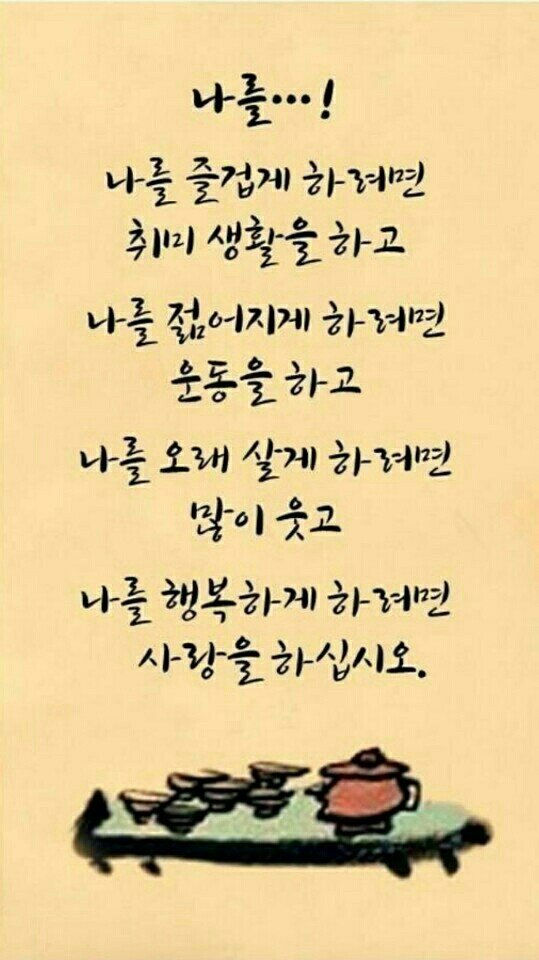 나를···!
나를 즐겁게 하려면
취미 생활을 하고
나를 젊어지게 하려면
운동을 하고
나를 오래 살게 하려면
많이 웃고
나를 행복하게 하려면
사랑을 하십시오.